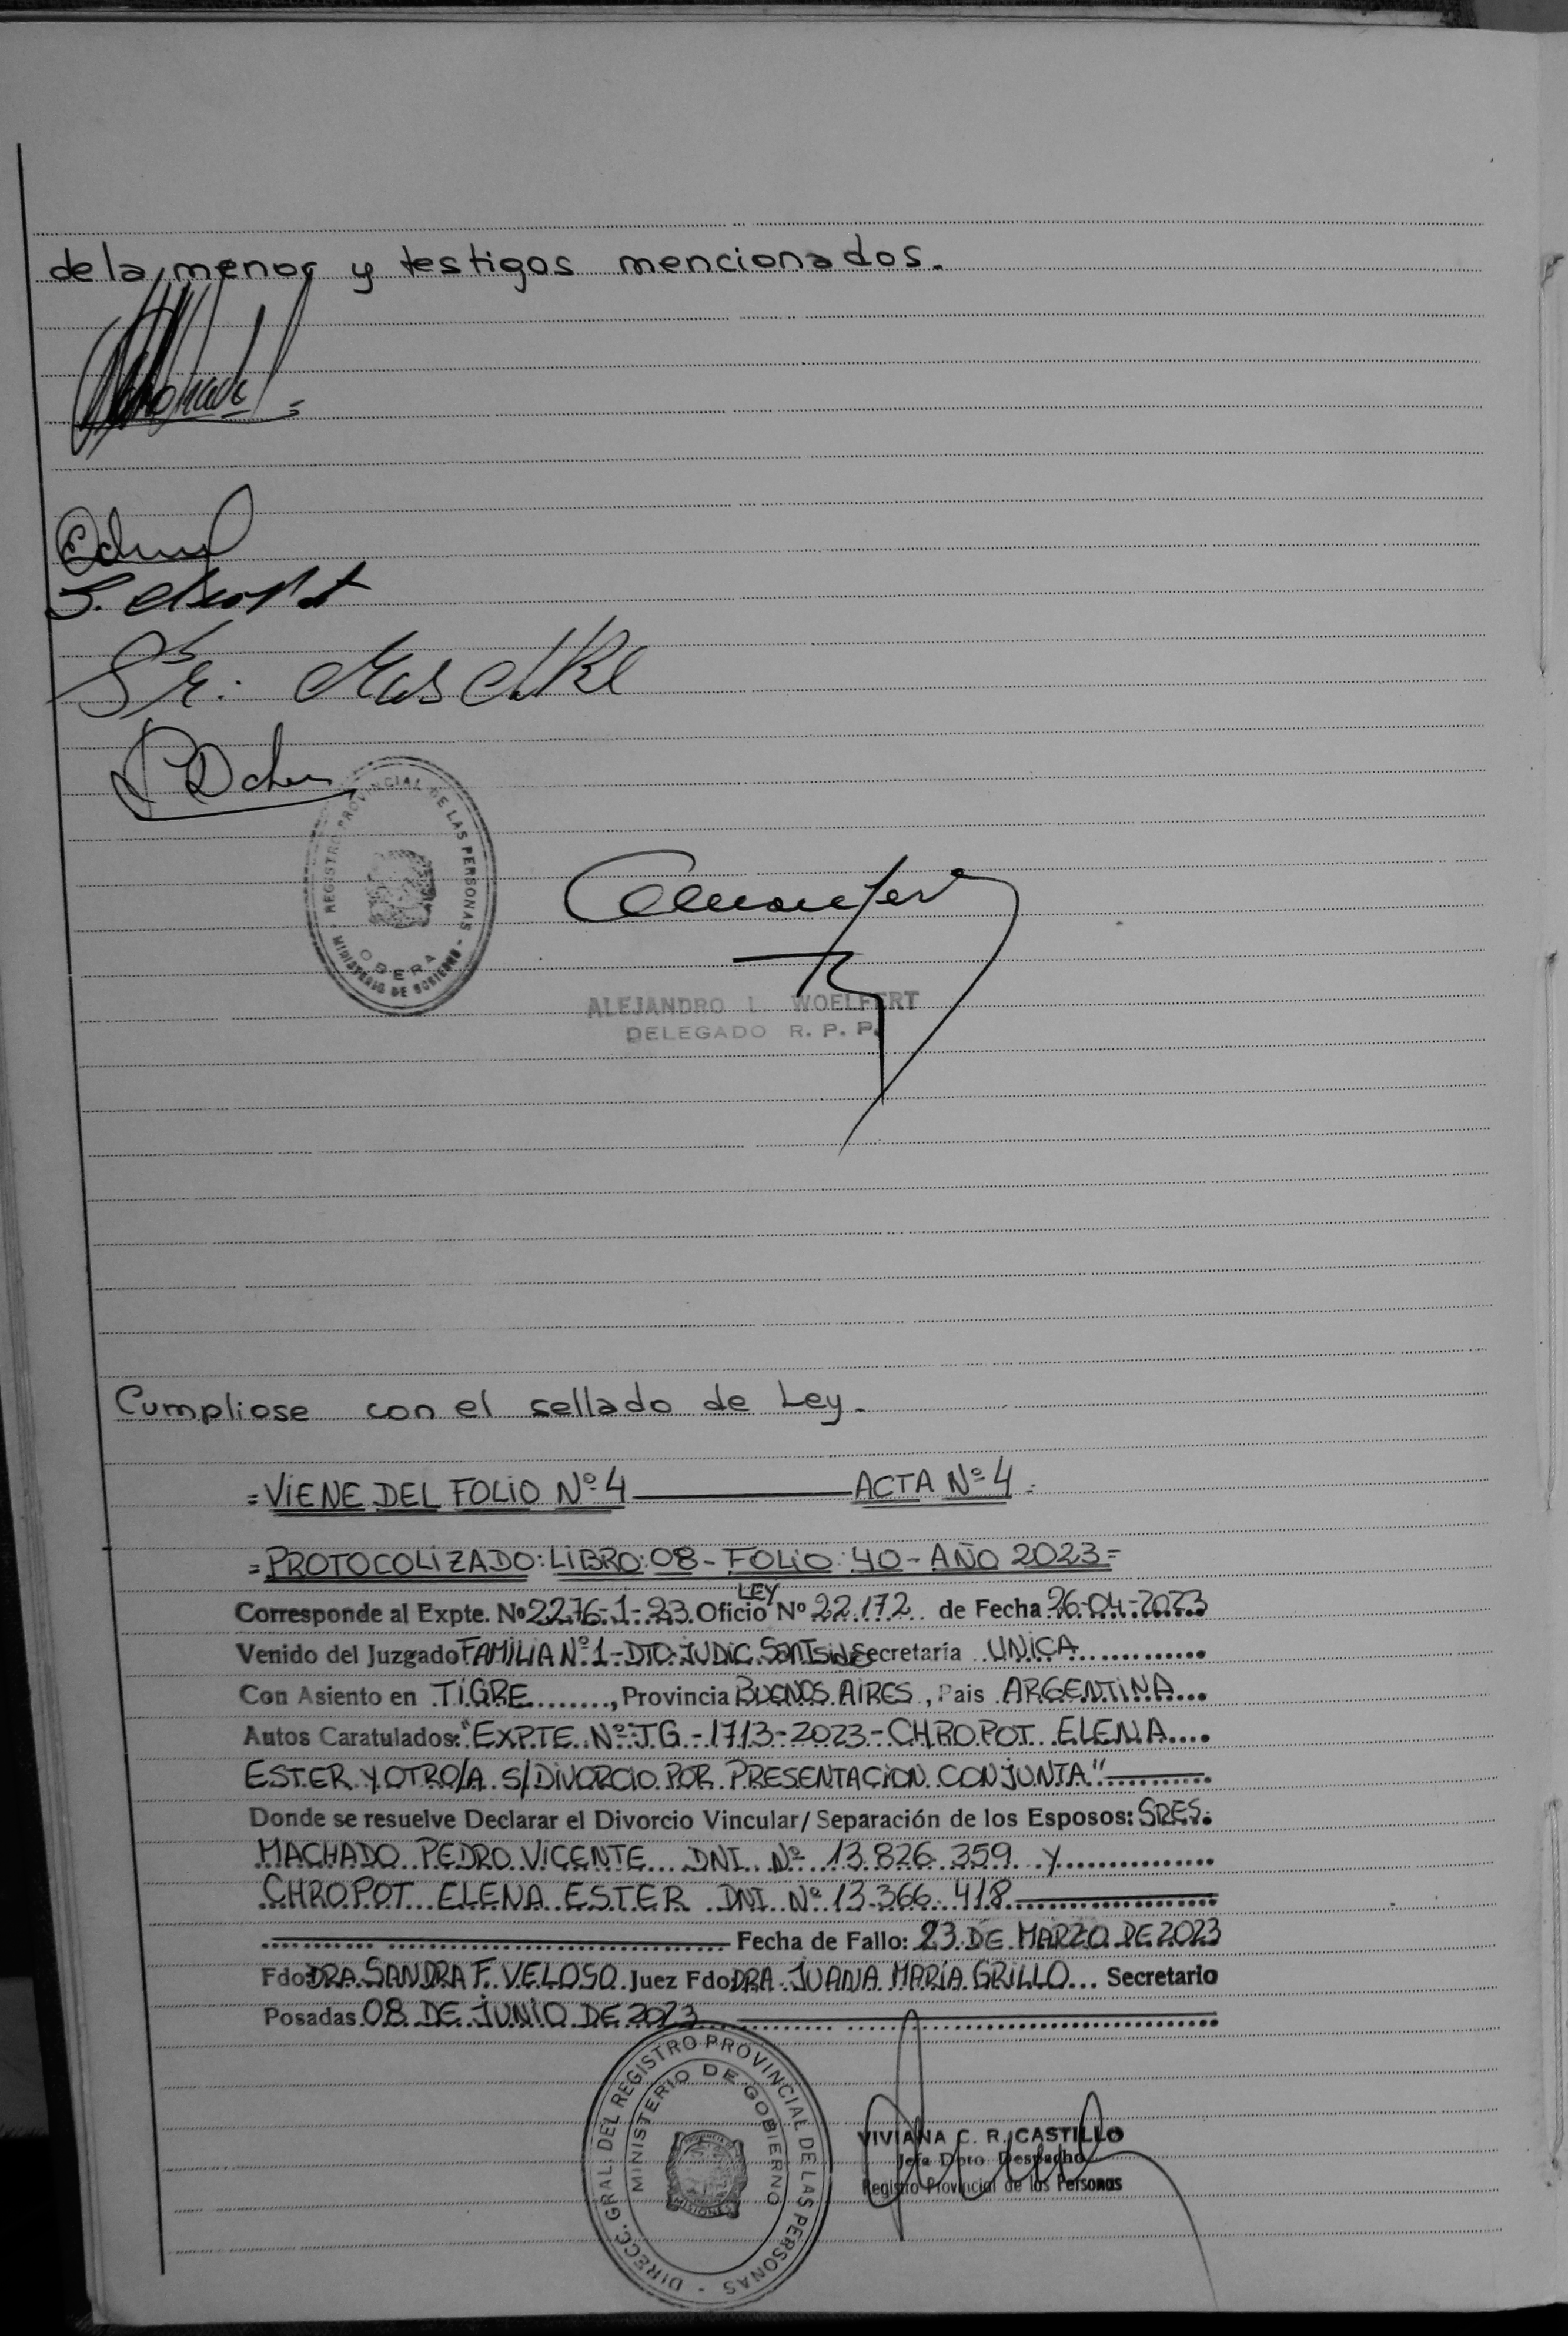 de la menor y testigos mencionados.
REGISTRO PROVINCIAL DE LAS PERSONAS
OBERA
MINISTERIO DE GOBIERNO
ALEJANDRO L. WOELFERT
DELEGADO R. P. P.
Cumpliose con el sellado de Ley.
=VIENE DEL FOLIO Nº 4 ACTA Nº 4=
=PROTOCOLIZADO: LIBRO: 08 - FOLIO: 40 - AÑO 2023=
LEY
Corresponde al Expte. Nº 2276-1-23 Oficio Nº 22.172 de Fecha 26-04-2023
Venido del Juzgado FAMILIA Nº 1 - DTO. JUDIC. San Isidro Secretaría UNICA
Con Asiento en TIGRE, Provincia BUENOS AIRES, Pais ARGENTINA
Autos Caratulados: "EXPTE. Nº: TG - 1713 - 2023 - CHROPOT ELENA
ESTER Y OTRO/A S/ DIVORCIO POR PRESENTACION CONJUNTA"
Donde se resuelve Declarar el Divorcio Vincular/ Separación de los Esposos: SRES.
MACHADO PEDRO VICENTE DNI Nº 13.826.359 y
CHROPOT ELENA ESTER DNI Nº 13.366.418
Fecha de Fallo: 23 DE MARZO DE 2023
Fdo DRA. SANDRA F. VELOSO Juez Fdo DRA. JUANA MARÍA GRILLO Secretario
Posadas 08 DE JUNIO DE 2023
DIRECC. GRAL. DEL REGISTRO PROVINCIAL DE LAS PERSONAS
MINISTERIO DE GOBIERNO
VIVIANA C. R. CASTILLO
Jefa Dpto. Despacho
Registro Provincial de las Personas